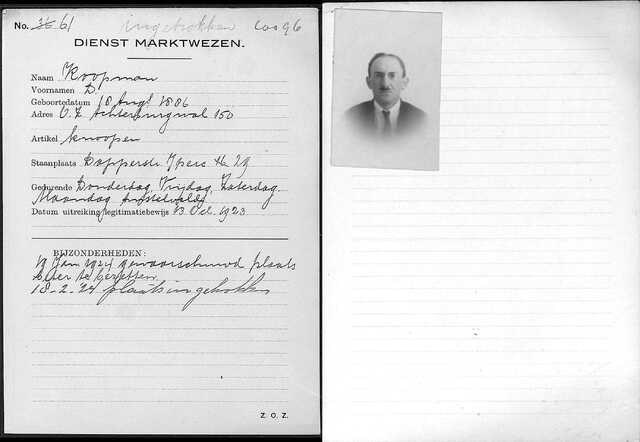 No. 36 61 ingetrokken
DIENST MARKTWEZEN.
Naam Koopman
Voornamen D.
Geboortedatum 18 Augt 1886
Adres O.Z. Achterburgwal 150
Artikel knoopen
Staanplaats Dapperstr. Ypers
Gedurende Donderdag, Vrijdag, Zaterdag.
Maandag Amstelveld
Datum uitreiking legitimatiebewijs 13 Oct. 1923
BIJZONDERHEDEN:
19 Jan 1924 gewaarschuwd plaats
beter te bezetten
18-2-24 plaats ingetrokken
Z. O. Z.